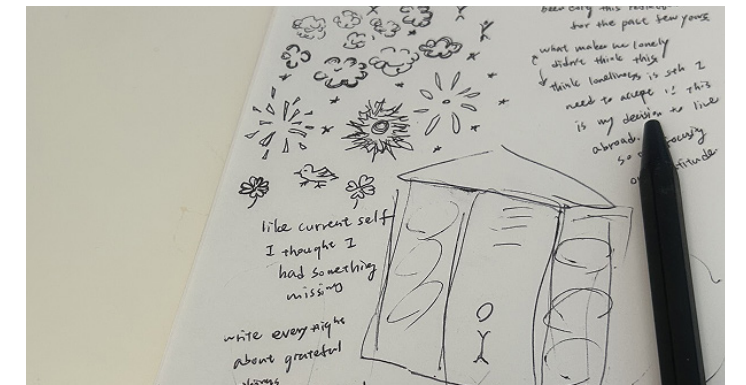 for the past few years
what make me lonely
didn't think this
think loneliness is sth I
need to accept
this
is my decision to live
abroad.
so
like current self
I thought I
had something
missing
write every night
about grateful
things